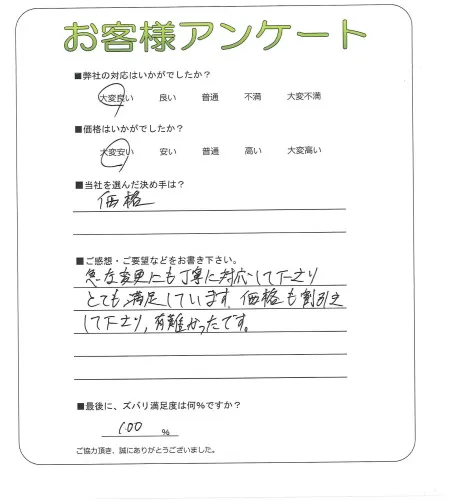 お客様アンケート
■弊社の対応はいかがでしたか？
大変良い 良い 普通 不満 大変不満
■価格はいかがでしたか？
大変安い 安い 普通 高い 大変高い
■当社を選んだ決め手は？
価格
■ご感想・ご要望などをお書き下さい。
急な変更にも丁寧に対応して下さり
とても満足しています。価格も割引き
して下さり、有難かったです。
■最後に、ズバリ満足度は何%ですか？
100 %
ご協力頂き、誠にありがとうございました。